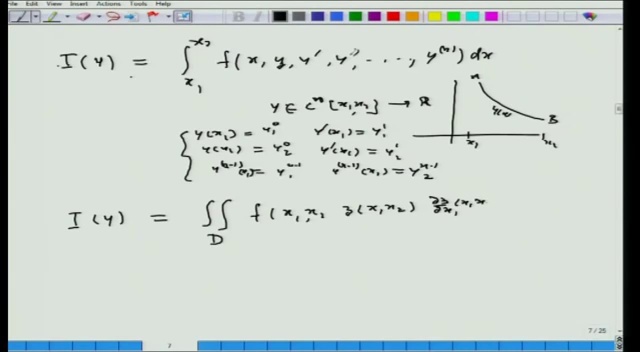 Edit View Insert Actions Tools Help
I(y) = ∫_{x_1}^{x_2} f(x, y, y', y'', ...., y^{(n)}) dx
y ∈ C^n [x_1, x_2] → R
A
y(x)
B
x_1
x_2
y(x_1) = y_1^0 y'(x_1) = y_1'
y(x_2) = y_2^0 y'(x_2) = y_2'
y^{(n-1)}(x_1) = y_1^{n-1} y^{(n-1)}(x_2) = y_2^{n-1}
I(y) = ∬_D f(x_1, x_2 z(x_1, x_2) ∂z/∂x_1 (x_1, x
7 / 25
7